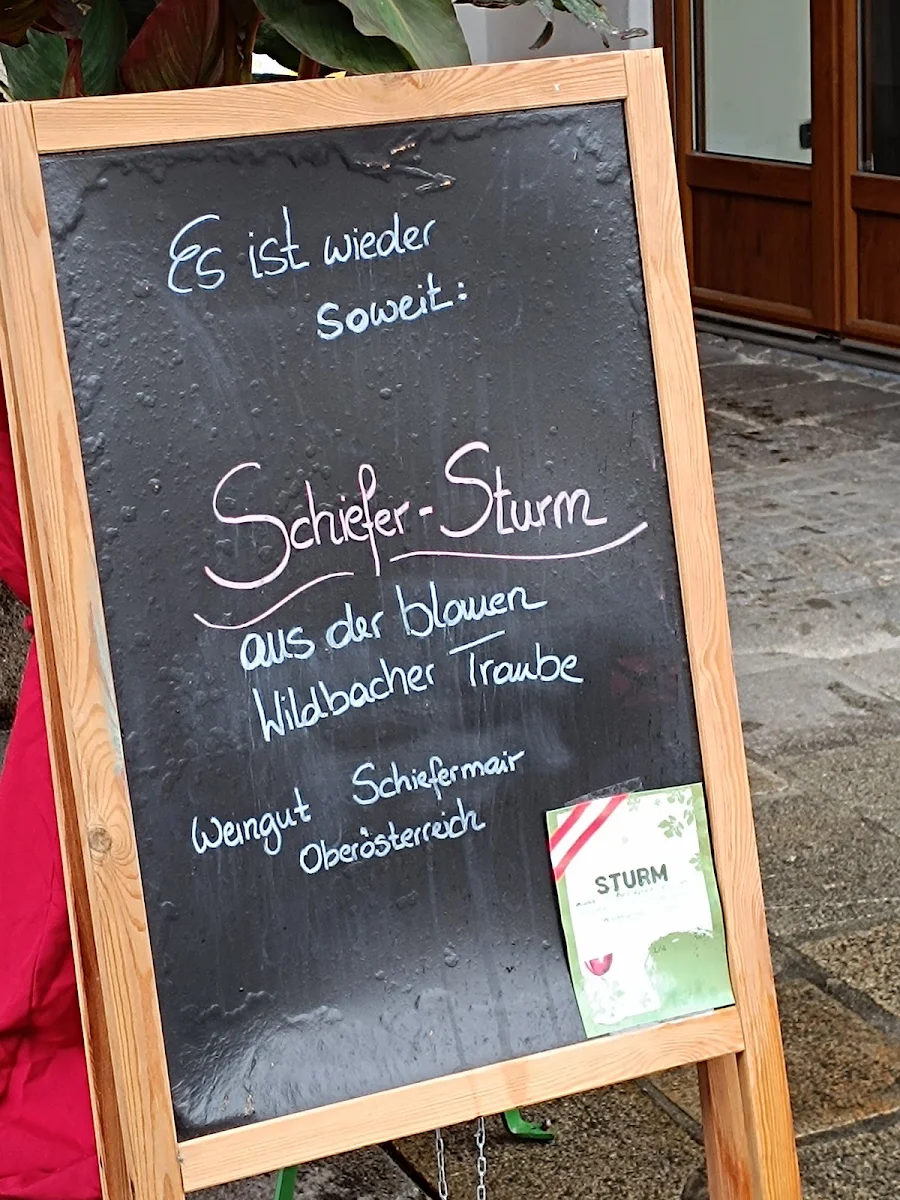 Es ist wieder
soweit:
Schiefer-Sturm
aus der blauen
Wildbacher Traube
Weingut Schiefermair
Oberösterreich
STURM